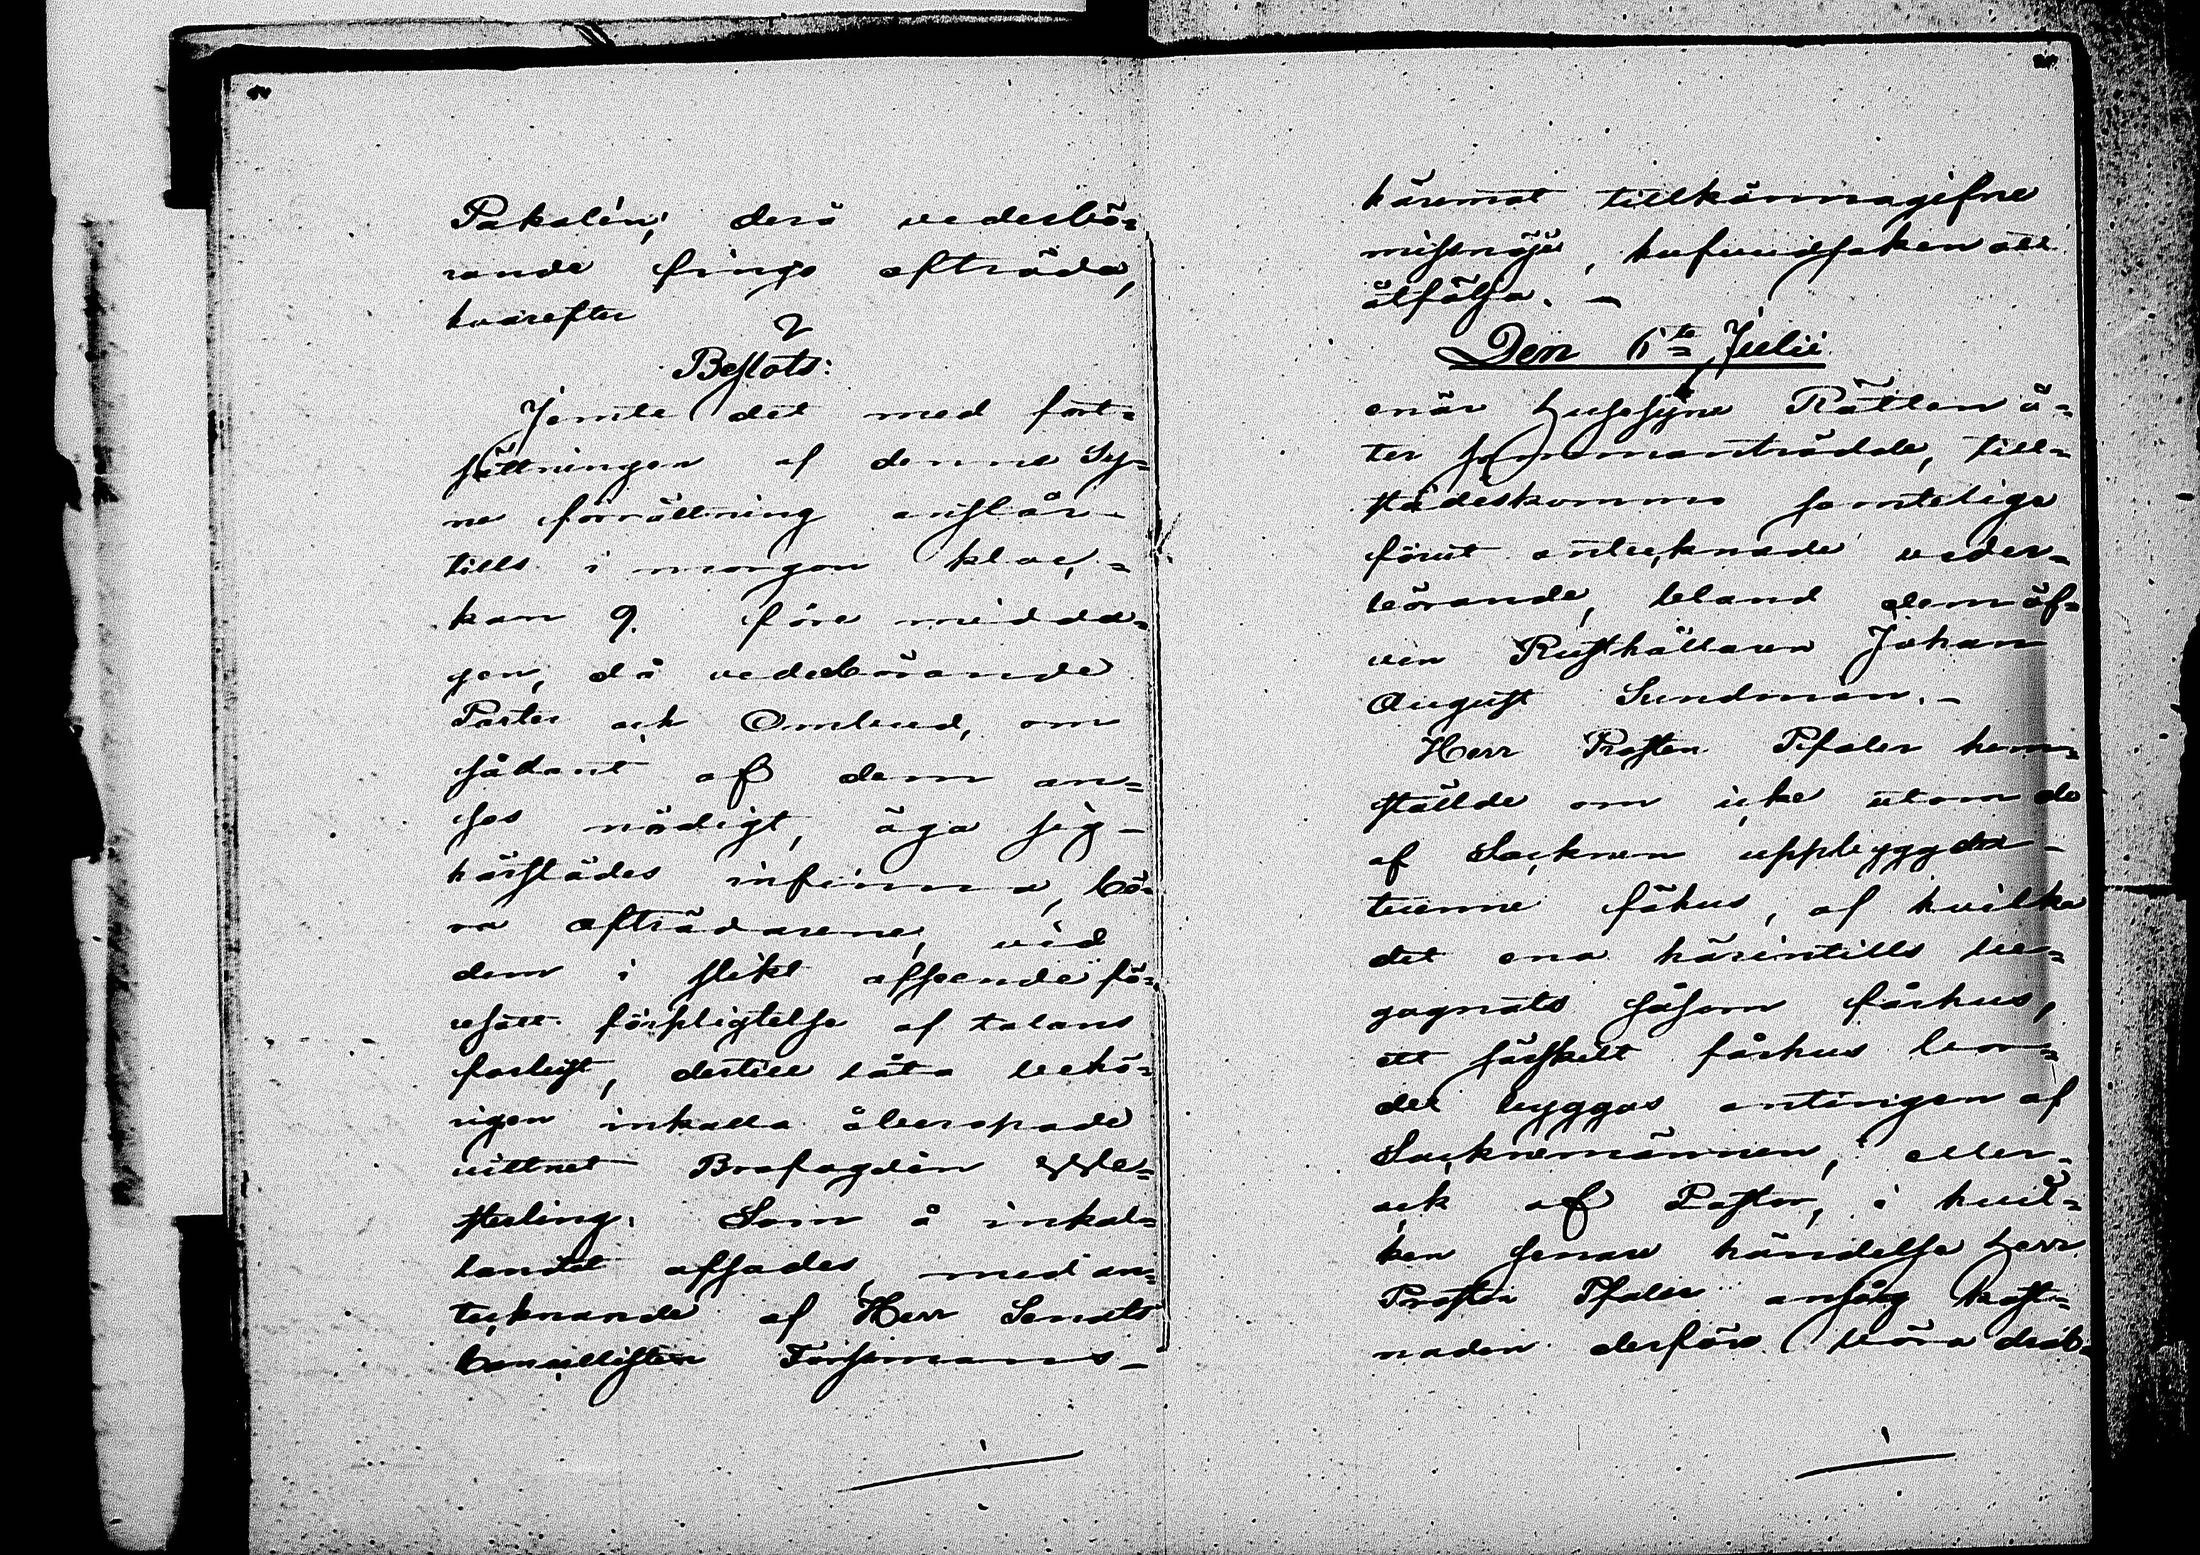 Pakalén; derå vederbö-
rande fingo afträda,
hvarefter
Beslöts:
Jemte det med fort-
sättningen af denne Sy-
ne förrättning anstår
tills i morgon kloc-
kan 9. före midda-
gen, då vederbörande
Parter och Ombud, om
sådant af dem an-
ses nödigt, äga sig
härstädes infinna, bö-
ra afträdarene, vid
dem i slikt afseende fö-
resatt förpligtelse af talans
förlust, dertill låta behö-
rigen inkalla åberopade
vittnet Brofogden We-
sterling. Som å inkal-
landet afsades, med an-
tecknande af Herr Senats
Cancellisten Forssmans
häremot tillkännagifne
missnöje, hufvudsaken att
åtfölja. -
Den 6te Julii
enär Husesyns Rätten å-
ter sammanträdde, till-
städeskommo samtelige
förut antecknade veder-
börande, bland dem äf-
ven Rusthållaren Johan
August Sundman. -
Herr Prosten Pfaler hem-
ställde om icke utom de
af Socknen uppbyggda
tvenne fähus, af hvilka
det ena härintills be-
gagnats såsom fårhus,
ett särskilt fårhus bor-
de byggas antingen af
Socknemännen, eller
ock af Pastor, i hvil-
ken senare händelse Herr
Prosten Pfaler ansåg kost-
naden derföre böra drab-